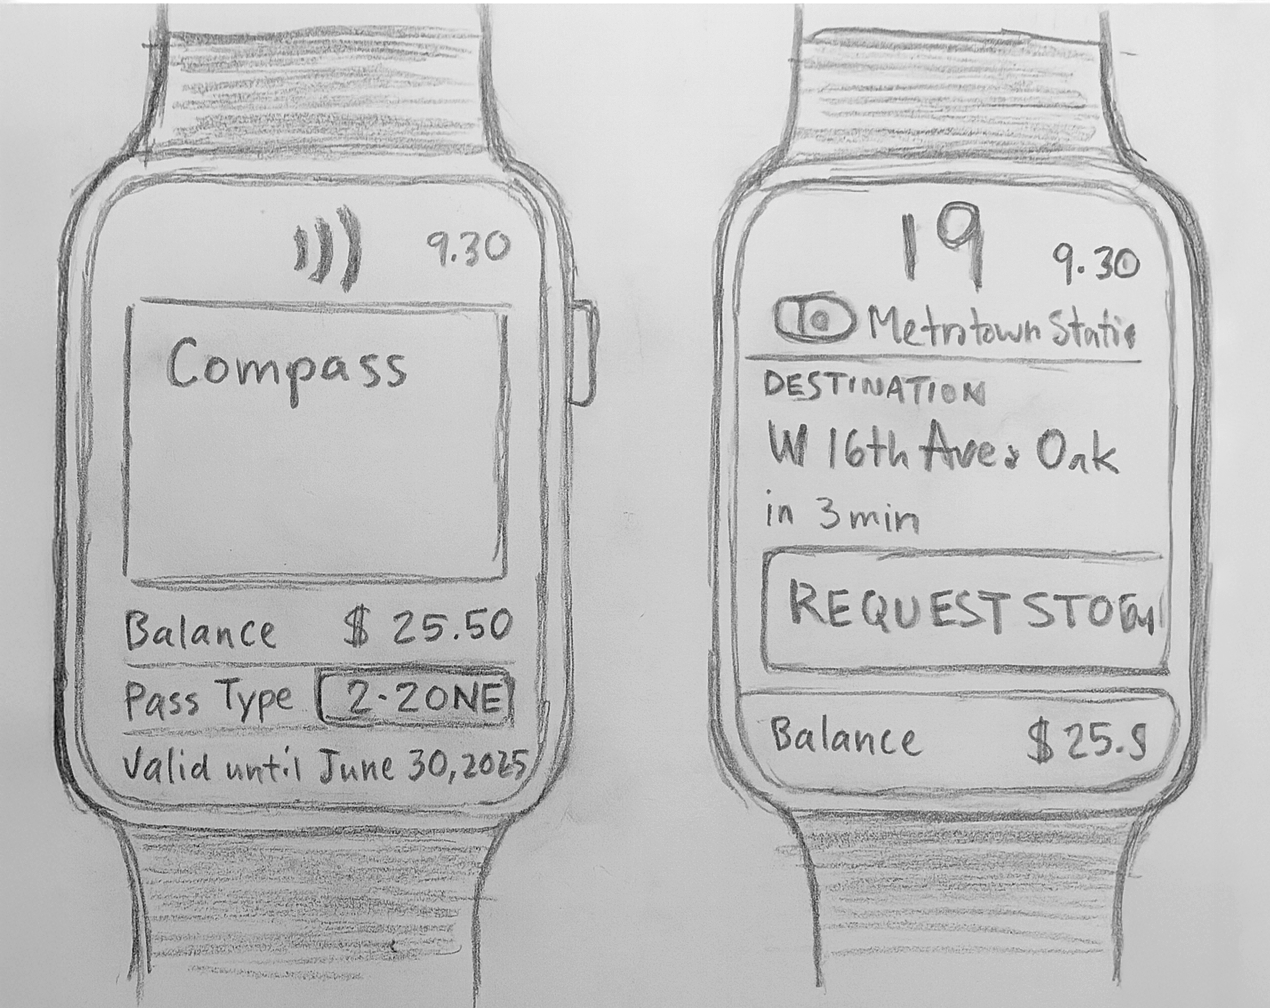 9.30
Compass
Balance $ 25.50
Pass Type 2-ZONE
Valid until June 30, 2025
19
9.30
Metrotown Statio
DESTINATION
W 16th Ave & Oak
in 3 min
REQUEST STO
Balance $25.5